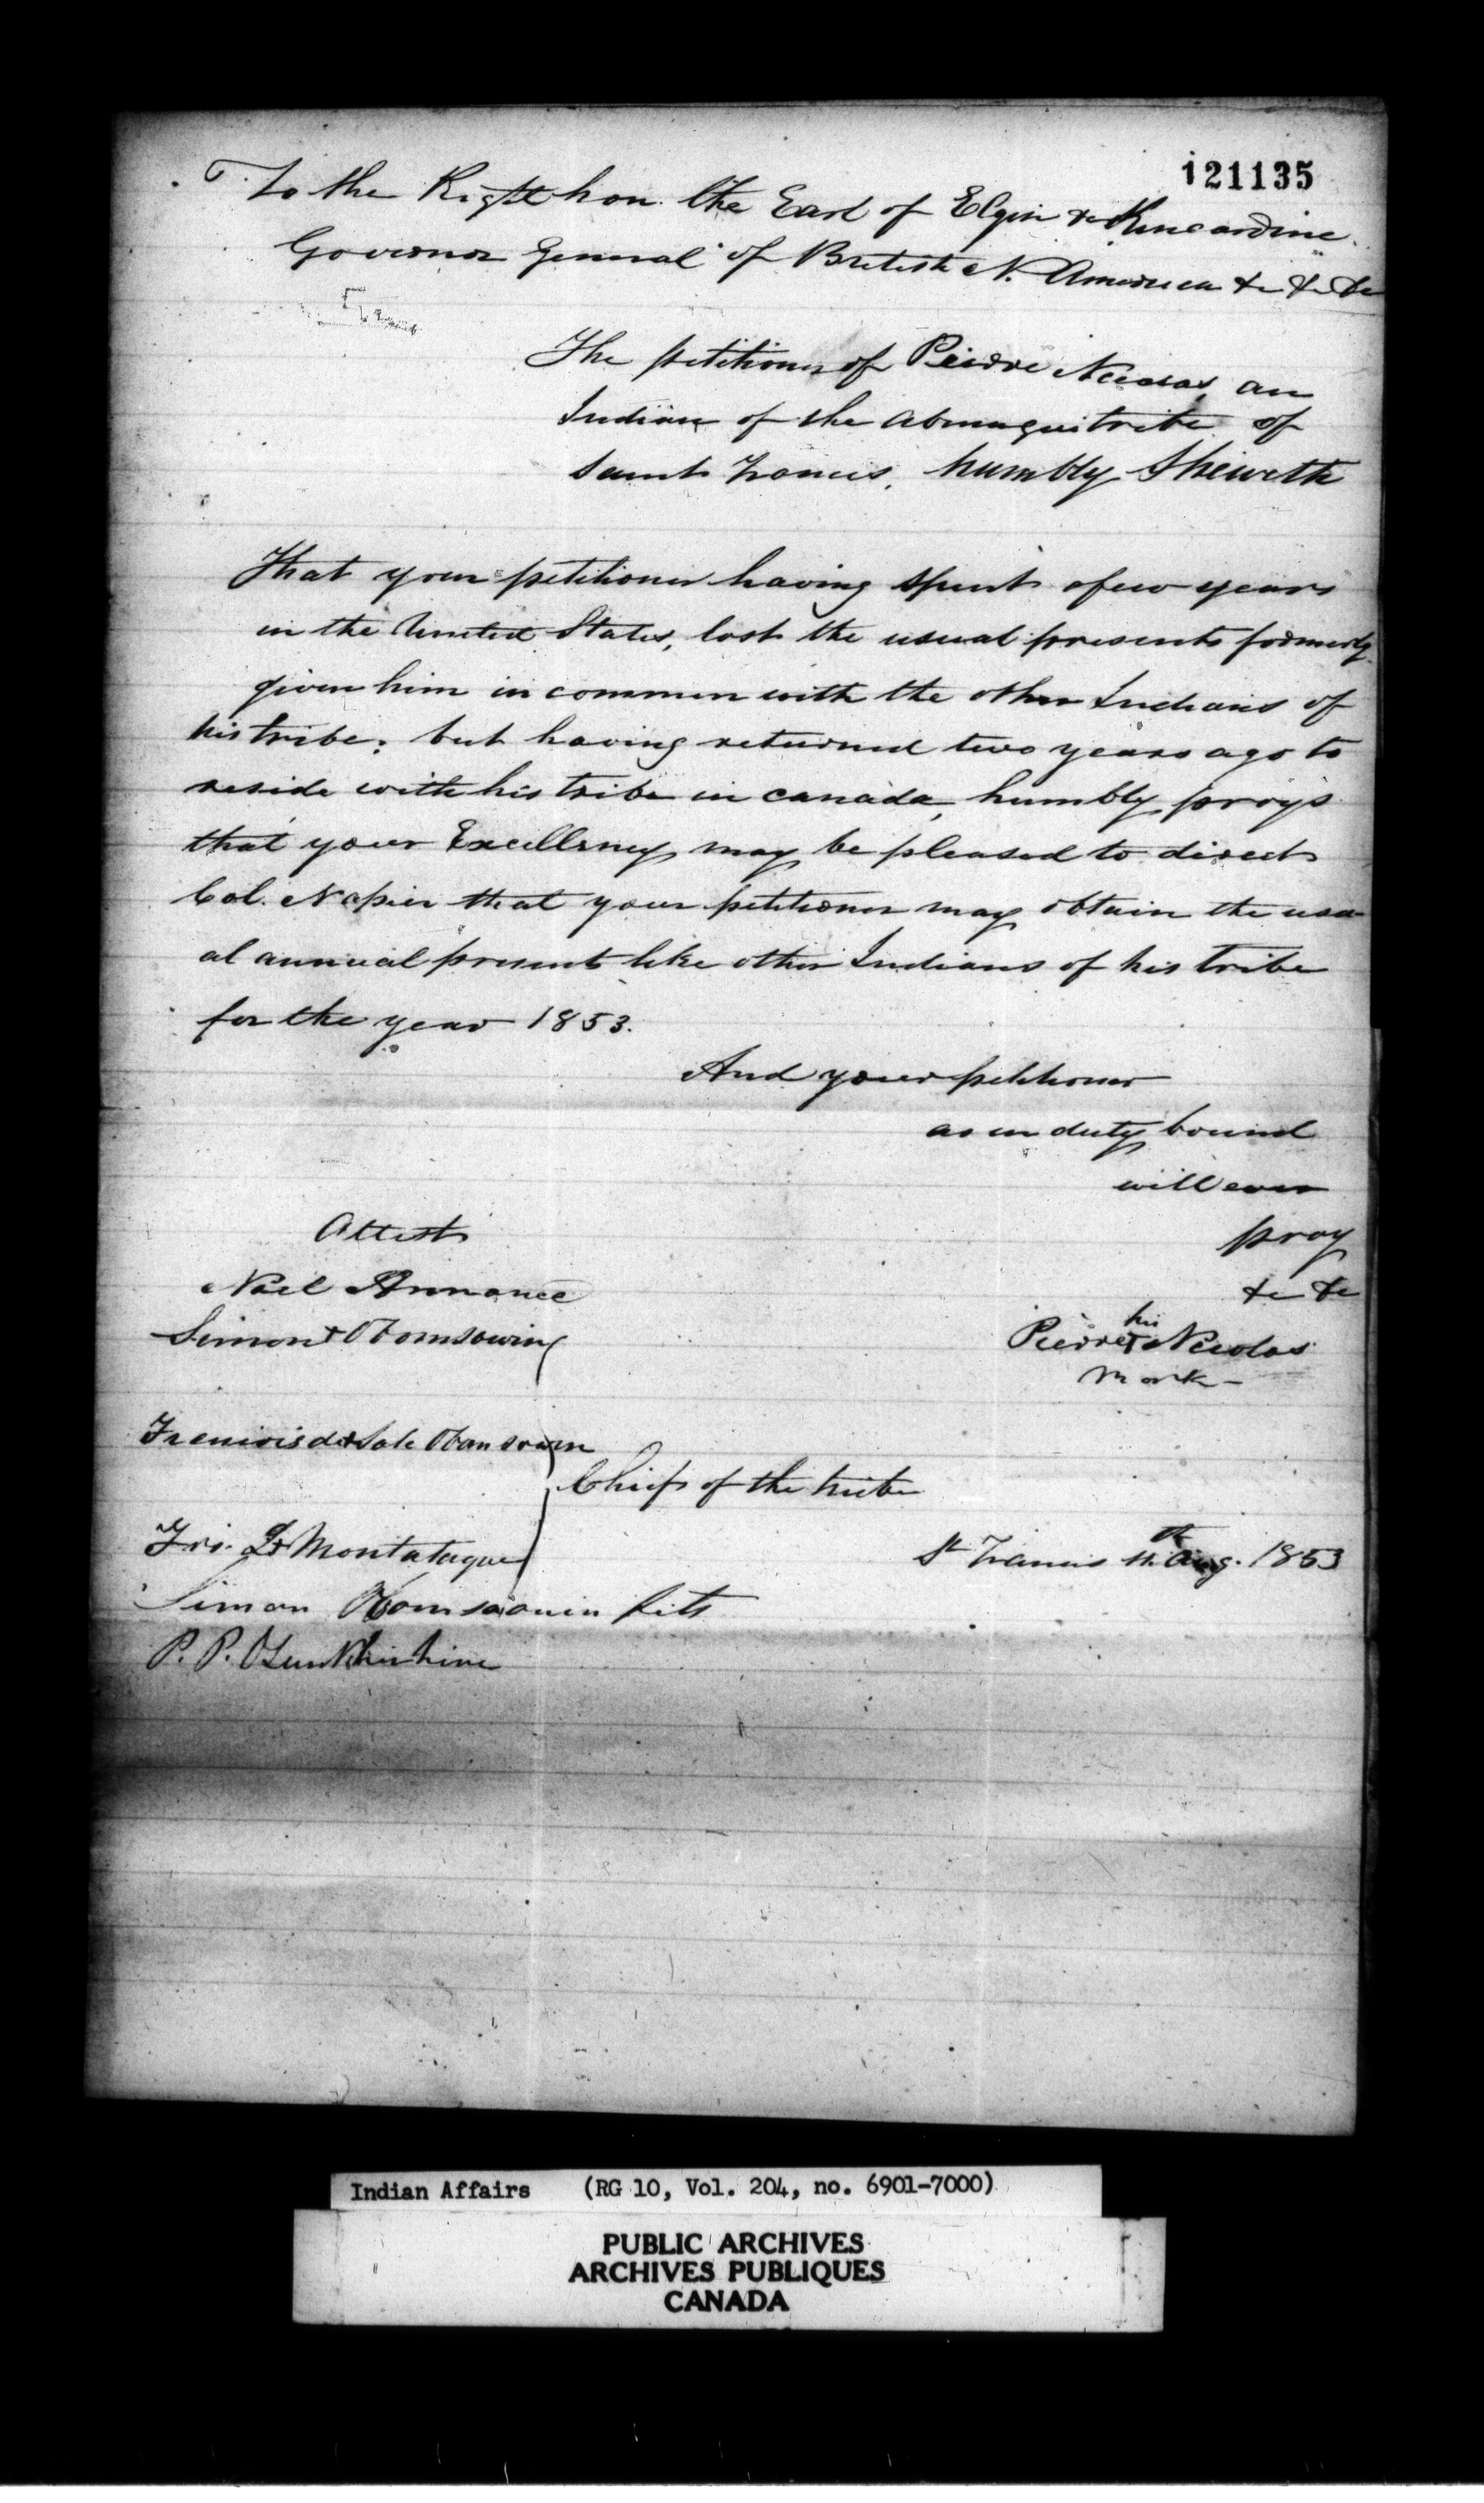 121135
To the Right hon. the Earl of Elgin & Kincardine
Governor General of British N. America &c &c &c
The petition of Pierre Nicolas, an
Indian of the Abnaqui tribe of
Saint Francis, humbly Sheweth
That your petitioner having spent a few years
in the United States, lost the usual presents formerly
given him in common with the other Indians of
his tribe; but having returned two years ago to
reside with his tribe in canada, humbly prays
that your Excellency may be pleased to direct
Col. Napier that your petitioner may obtain the usu-
al annual presents like other Indians of his tribe
for the year 1853.
And your petitioner
as in duty bound
will ever
pray
&c &c
Attest
Noel Annance
Simon + Obomsawin
his
Pierre + Nicolas
mark
Obomsawin
Chiefs of the tribe
Frs. D + Montataque
St Francis 11th Aug. 1853
Simon Obomsaouin fils
P. P. Osunkhirhine
Indian Affairs (RG 10, Vol. 204, no. 6901-7000)
PUBLIC ARCHIVES
ARCHIVES PUBLIQUES
CANADA